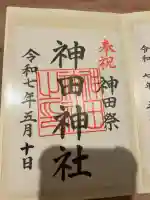 奉祝
神田祭
神田神社
令和七年五月十日